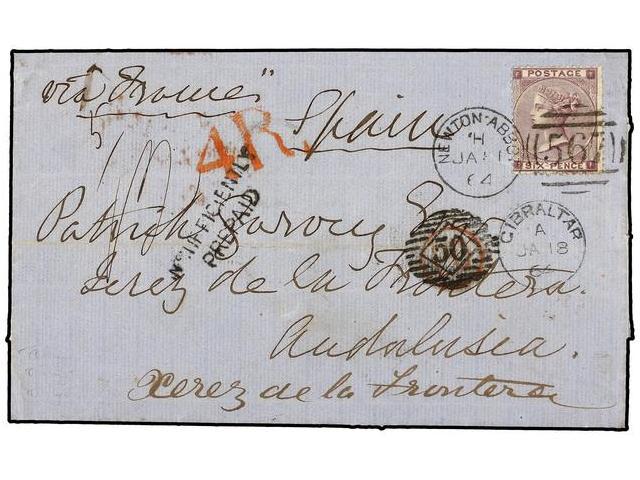 via France"
Spain
POSTAGE
SIX PENCE
NEWTON-ABBOT
H
JA 11
64
565
4R.
INSUFFICIENTLY
PREPAID
GIBRALTAR
A
JA 18
64
50
Patrick Garvey Esq
Xerez de la Frontera.
Andalusia.
Xerez de la Frontera